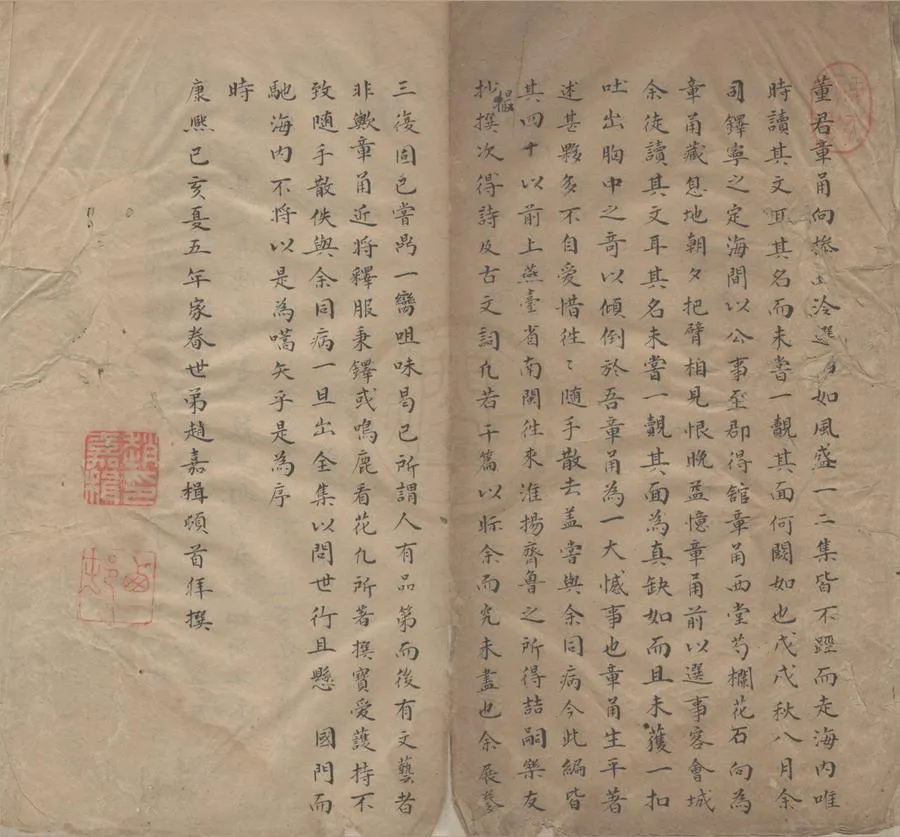 董君章甫向擦上冷選如風盛一二集皆不踁而走海内唯
時讀其文耳其名而未嘗一覿其面何闕如也戊戌秋八月余
司鐸寧之定海間以公事至郡得館章甫西堂芍欄花石向為
章甫藏息地朝夕把臂相見恨晚益憶章甫前以選事客會城
余徒讀其文耳其名未嘗一覿其面為真缺如而且未獲一扣
吐出胸中之奇以傾倒於吾章甫為一大憾事也章甫生平著
述甚夥多不自愛惜徃〻随手散去盖嘗與余同病今此編皆
其四十以前上燕臺省南闈徃來淮揚齊魯之所得詰嗣樂友
抄撮撰次得詩及古文詞凢若干篇以眎余而究未盡也余展
三復固已嘗鼎一臠咀味曷已所謂人有品第而後有文藝者
非歟章甫近將釋服秉鐸或鳴鹿看花凢所著撰寶愛護持不
致随手散佚與余同病一旦出全集以問世行且懸 國門而
馳海内不將以是為嚆矢乎是為序
時
康熙己亥夏五年家眷世弟趙嘉楫頓首拜撰